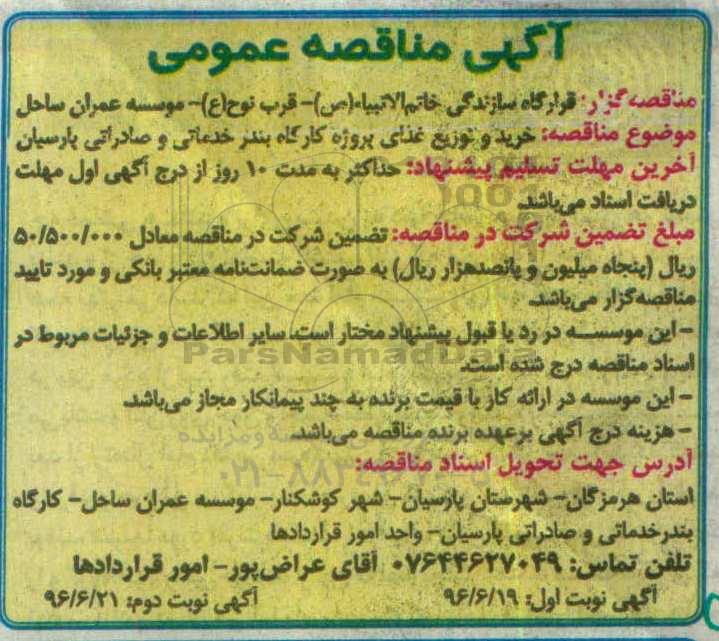 آگهی مناقصه عمومی
مناقصه‌گزار: قرارگاه سازندگی خاتم‌الانبیاء(ص)- قرب نوح(ع)- موسسه عمران ساحل
موضوع مناقصه: خرید و توزیع غذای پروژه کارگاه بندر خدماتی و صادراتی پارسیان
آخرین مهلت تسلیم پیشنهاد: حداکثر به مدت ۱۰ روز از درج آگهی اول مهلت
دریافت اسناد می‌باشد.
مبلغ تضمین شرکت در مناقصه: تضمین شرکت در مناقصه معادل ۵۰/۵۰۰/۰۰۰
ریال (پنجاه میلیون و پانصدهزار ریال) به صورت ضمانتنامه معتبر بانکی و مورد تایید
مناقصه‌گزار می‌باشد.
- این موسسه در رد یا قبول پیشنهاد مختار است. سایر اطلاعات و جزئیات مربوط در
ParsNamadData
اسناد مناقصه درج شده است.
- این موسسه در ارائه کار با قیمت برنده به چند پیمانکار مجاز می‌باشد.
- هزینه درج آگهی برعهده برنده مناقصه می‌باشد.
آدرس جهت تحویل اسناد مناقصه:
استان هرمزگان- شهرستان پارسیان- شهر کوشکنار- موسسه عمران ساحل- کارگاه
بندرخدماتی و صادراتی پارسیان- واحد امور قراردادها
تلفن تماس: ۰۷۶۴۴۶۲۷۰۴۹ آقای عراض‌پور- امور قراردادها
آگهی نوبت اول: ۹۶/۶/۱۹ آگهی نوبت دوم: ۹۶/۶/۲۱